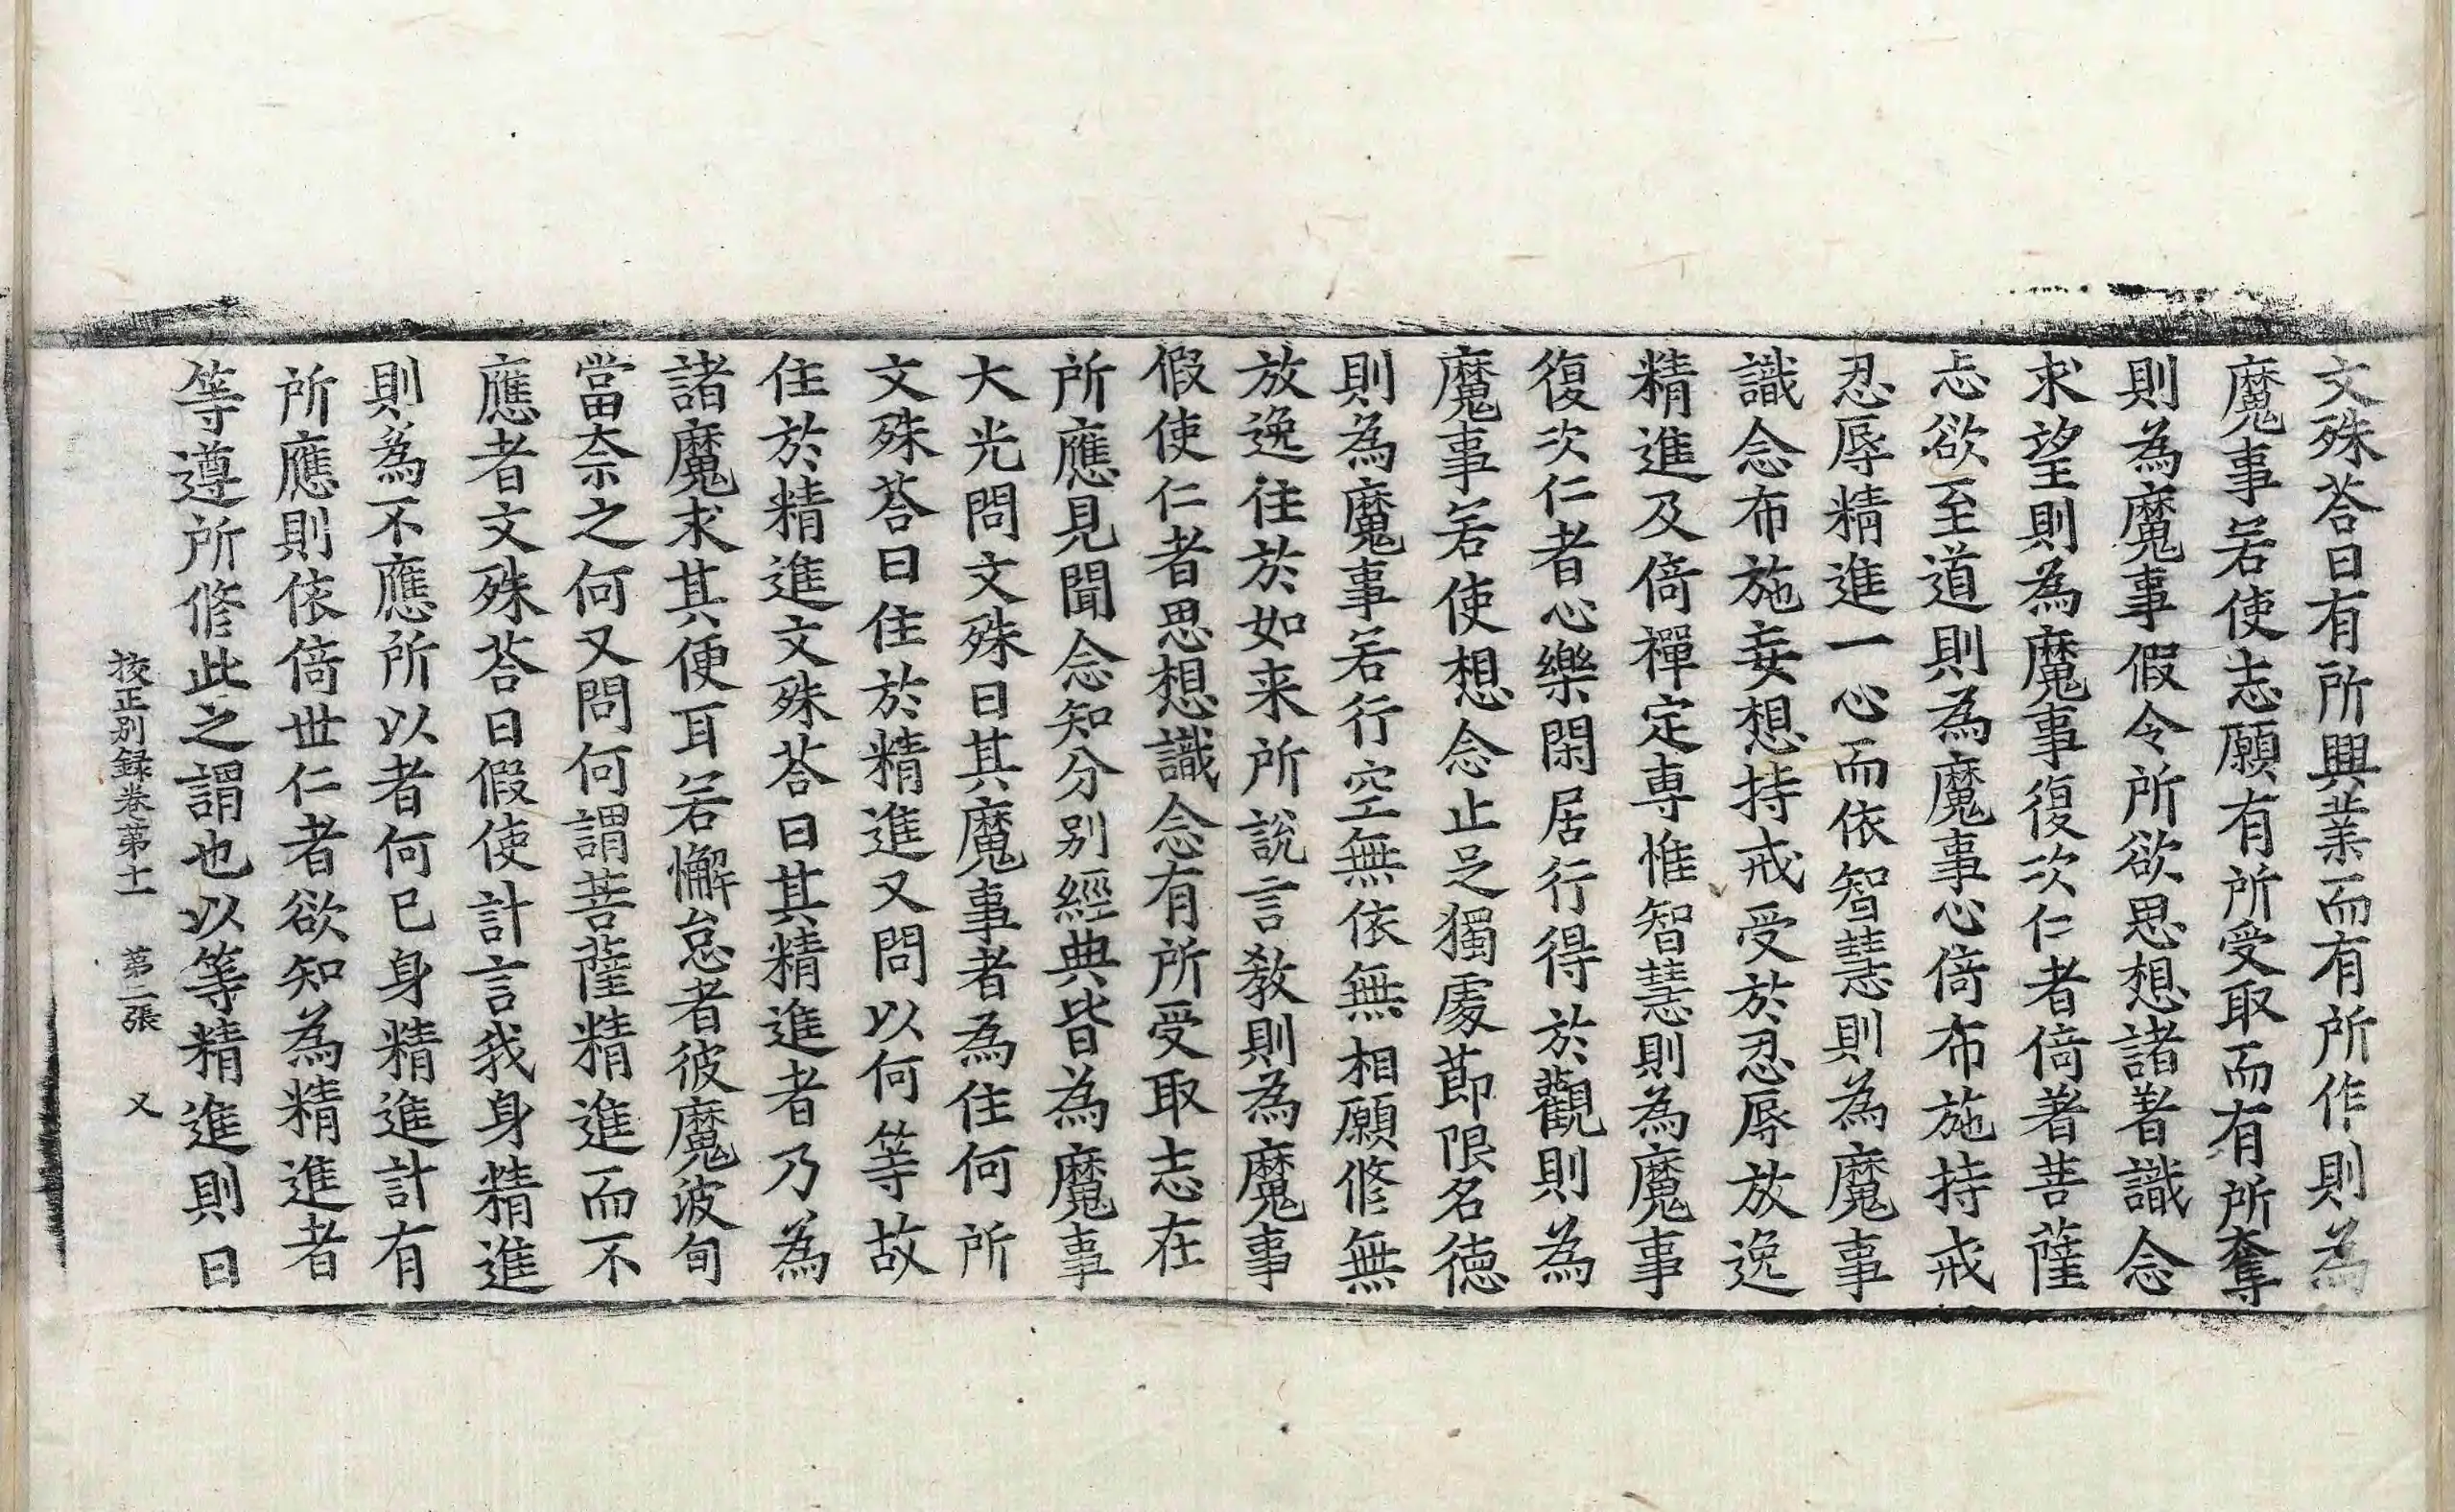 文殊荅曰有所興業而有所作則為
魔事若使志願有所受取而有所奪
則為魔事假令所欲思想諸著識念
求望則為魔事復次仁者倚著菩薩
忐欲至道則為魔事心倚布施持戒
忍辱精進一心而依智慧則為魔事
識念布施妄想持戒受於忍辱放逸
精進及倚禪定専惟智慧則為魔事
復次仁者心樂閑居行得於觀則為
魔事若使想念止足獨處莭限名德
則為魔事若行空無依無相願修無
放逸住於如来所説言教則為魔事
假使仁者思想識念有所受取志在
所應見聞念知分别經典皆為魔事
大光問文殊曰其魔事者為住何所
文殊荅曰住於精進又問以何等故
住於精進文殊荅曰其精進者乃為
諸魔求其便耳若懈怠者彼魔波旬
當奈之何又問何謂菩薩精進而不
應者文殊荅曰假使計言我身精進
則為不應所以者何已身精進計有
所應則依倚世仁者欲知為精進者
等遵所修此之謂也以等精進則曰
挍正别録卷苐十一 苐二張 又